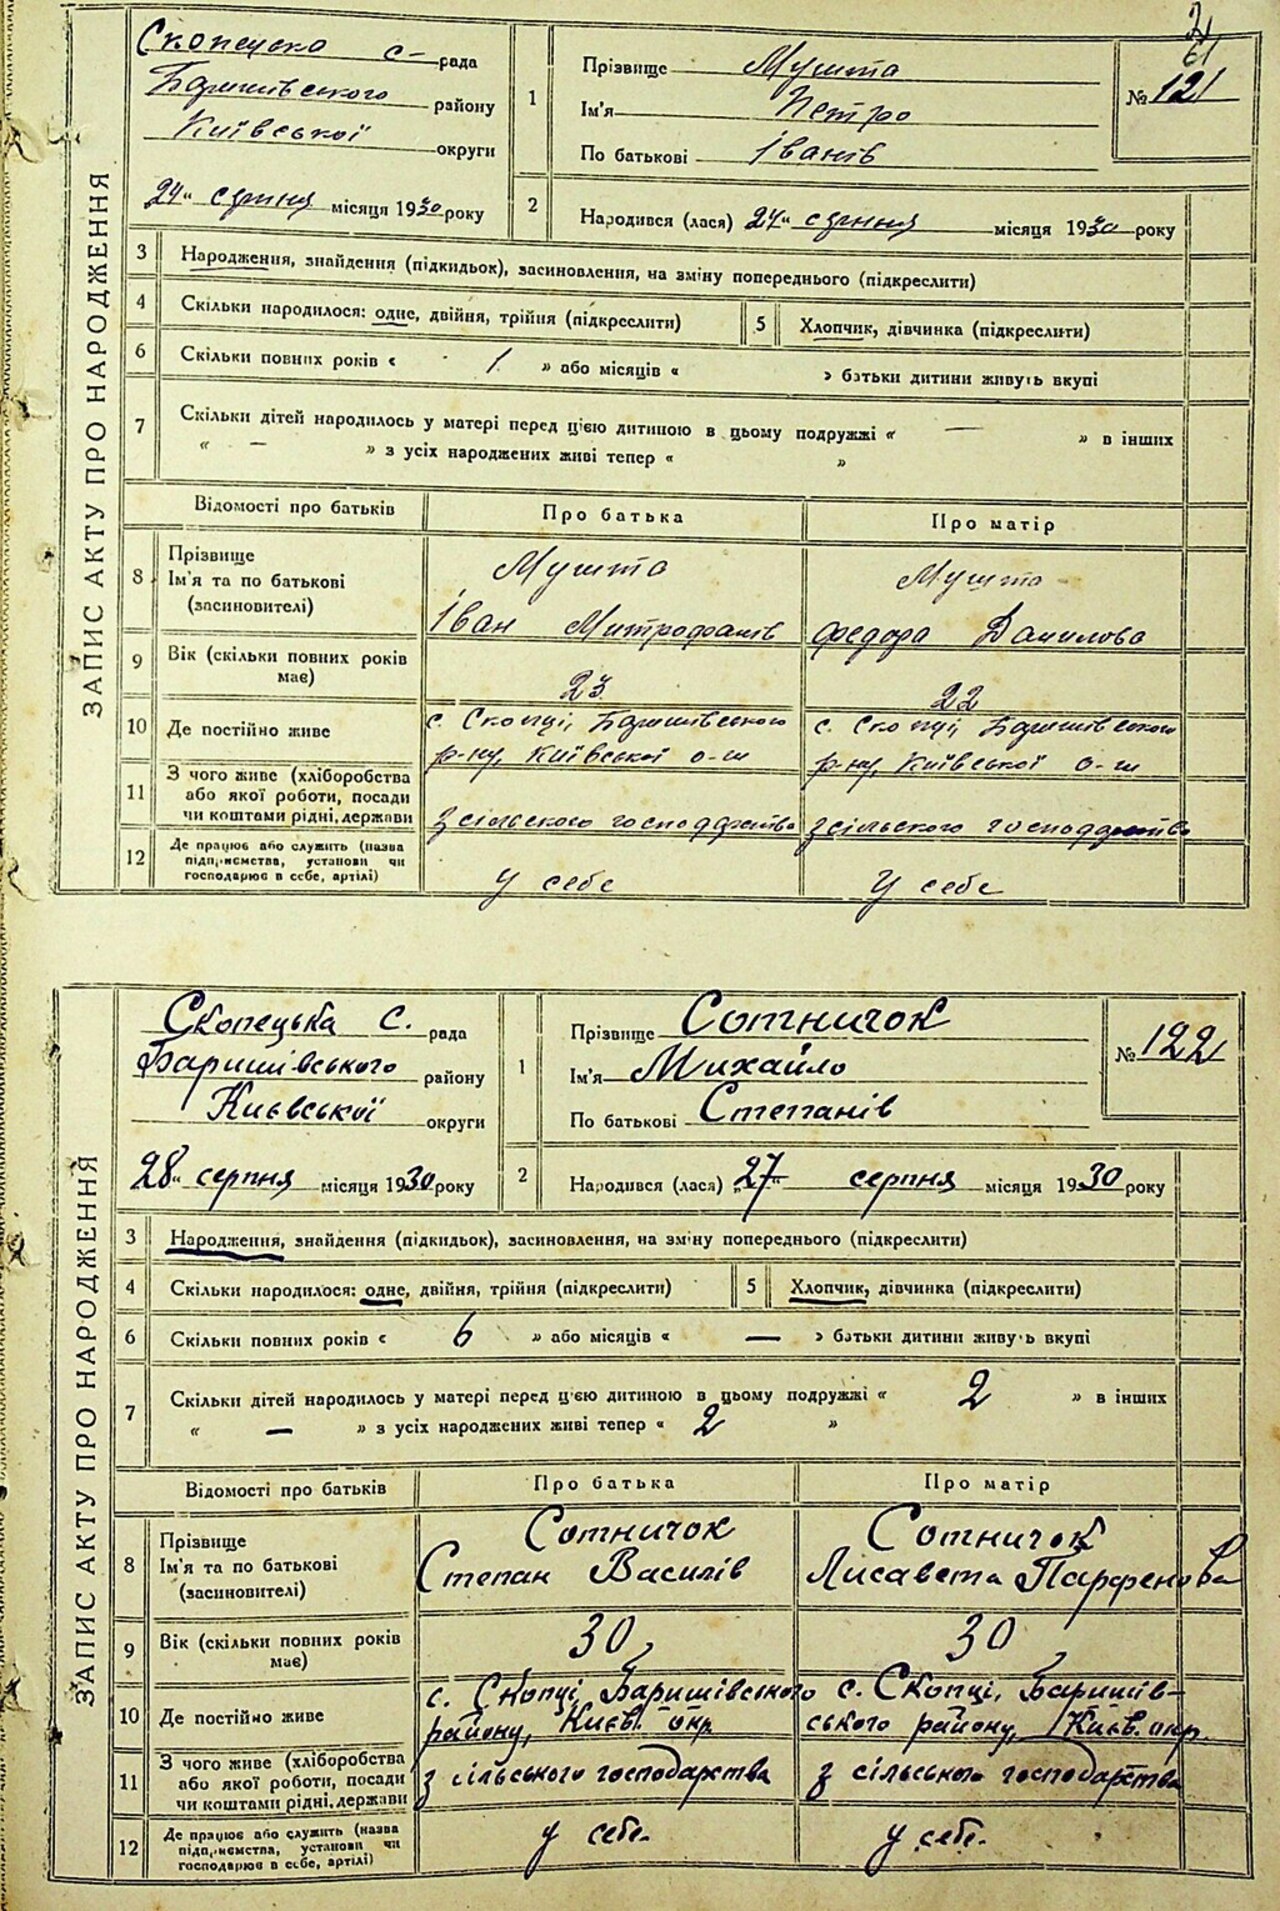 21
61
ЗАПИС АКТУ ПРО НАРОДЖЕННЯ
Скопецко с- рада
Баришівського району
Київської округи
24" серпня місяця 1930 року
1
Прізвище Мушта
Ім'я Петро
По батькові Іванів
№ 121
2
Народився (лася) 24" серпня місяця 1930 року
3 Народження, знайдення (підкидьок), засиновлення, на зміну попереднього (підкреслити)
4 Скільки народилося: одне, двійня, трійня (підкреслити) 5 Хлопчик, дівчинка (підкреслити)
6 Скільки повних років « 1 » або місяців « » батьки дитини живуть вкупі
7 Скільки дітей народилось у матері перед цією дитиною в цьому подружжі « — » в інших
« — » з усіх народжених живі тепер « »
Відомості про батьків Про батька Про матір
8 Прізвище Ім'я та по батькові (засиновителі)
Мушта Мушта
Іван Митрофанів Федора Данилова
9 Вік (скільки повних років має) 23 22
10 Де постійно живе
с. Скопці, Баришівського с. Скопці, Баришівського
р-ну, Київської о-ги р-ну, Київської о-ги
11 З чого живе (хліборобства або якої роботи, посади чи коштами рідні, держави
з сільского господарства з сільского господарства
12 Де працює або служить (назва підприємства, установи чи господарює в себе, артілі)
у себе у себе
ЗАПИС АКТУ ПРО НАРОДЖЕННЯ
Скопецька с. рада
Баришівського району
Києвської округи
28" серпня місяця 1930 року
1
Прізвище Сотничок
Ім'я Михайло
По батькові Степанів
№ 122
2
Народився (лася) „27" серпня місяця 1930 року
3 Народження, знайдення (підкидьок), засиновлення, на зміну попереднього (підкреслити)
4 Скільки народилося: одне, двійня, трійня (підкреслити) 5 Хлопчик, дівчинка (підкреслити)
6 Скільки повних років « 6 » або місяців « — » батьки дитини живуть вкупі
7 Скільки дітей народилось у матері перед цією дитиною в цьому подружжі « 2 » в інших
« — » з усіх народжених живі тепер « 2 »
Відомості про батьків Про батька Про матір
8 Прізвище Ім'я та по батькові (засиновителі)
Сотничок Сотничок
Степан Василів Лисавета Парфенова
9 Вік (скільки повних років має) 30 30
10 Де постійно живе
с. Скопці, Баришівського с. Скопці, Баришів-
району, Києв. окр. ського району, Києв. окр.
11 З чого живе (хліборобства або якої роботи, посади чи коштами рідні, держави
з сільського господарства з сільського господарства
12 Де працює або служить (назва підприємства, установи чи господарює в себе, артілі)
у себе. у себе.